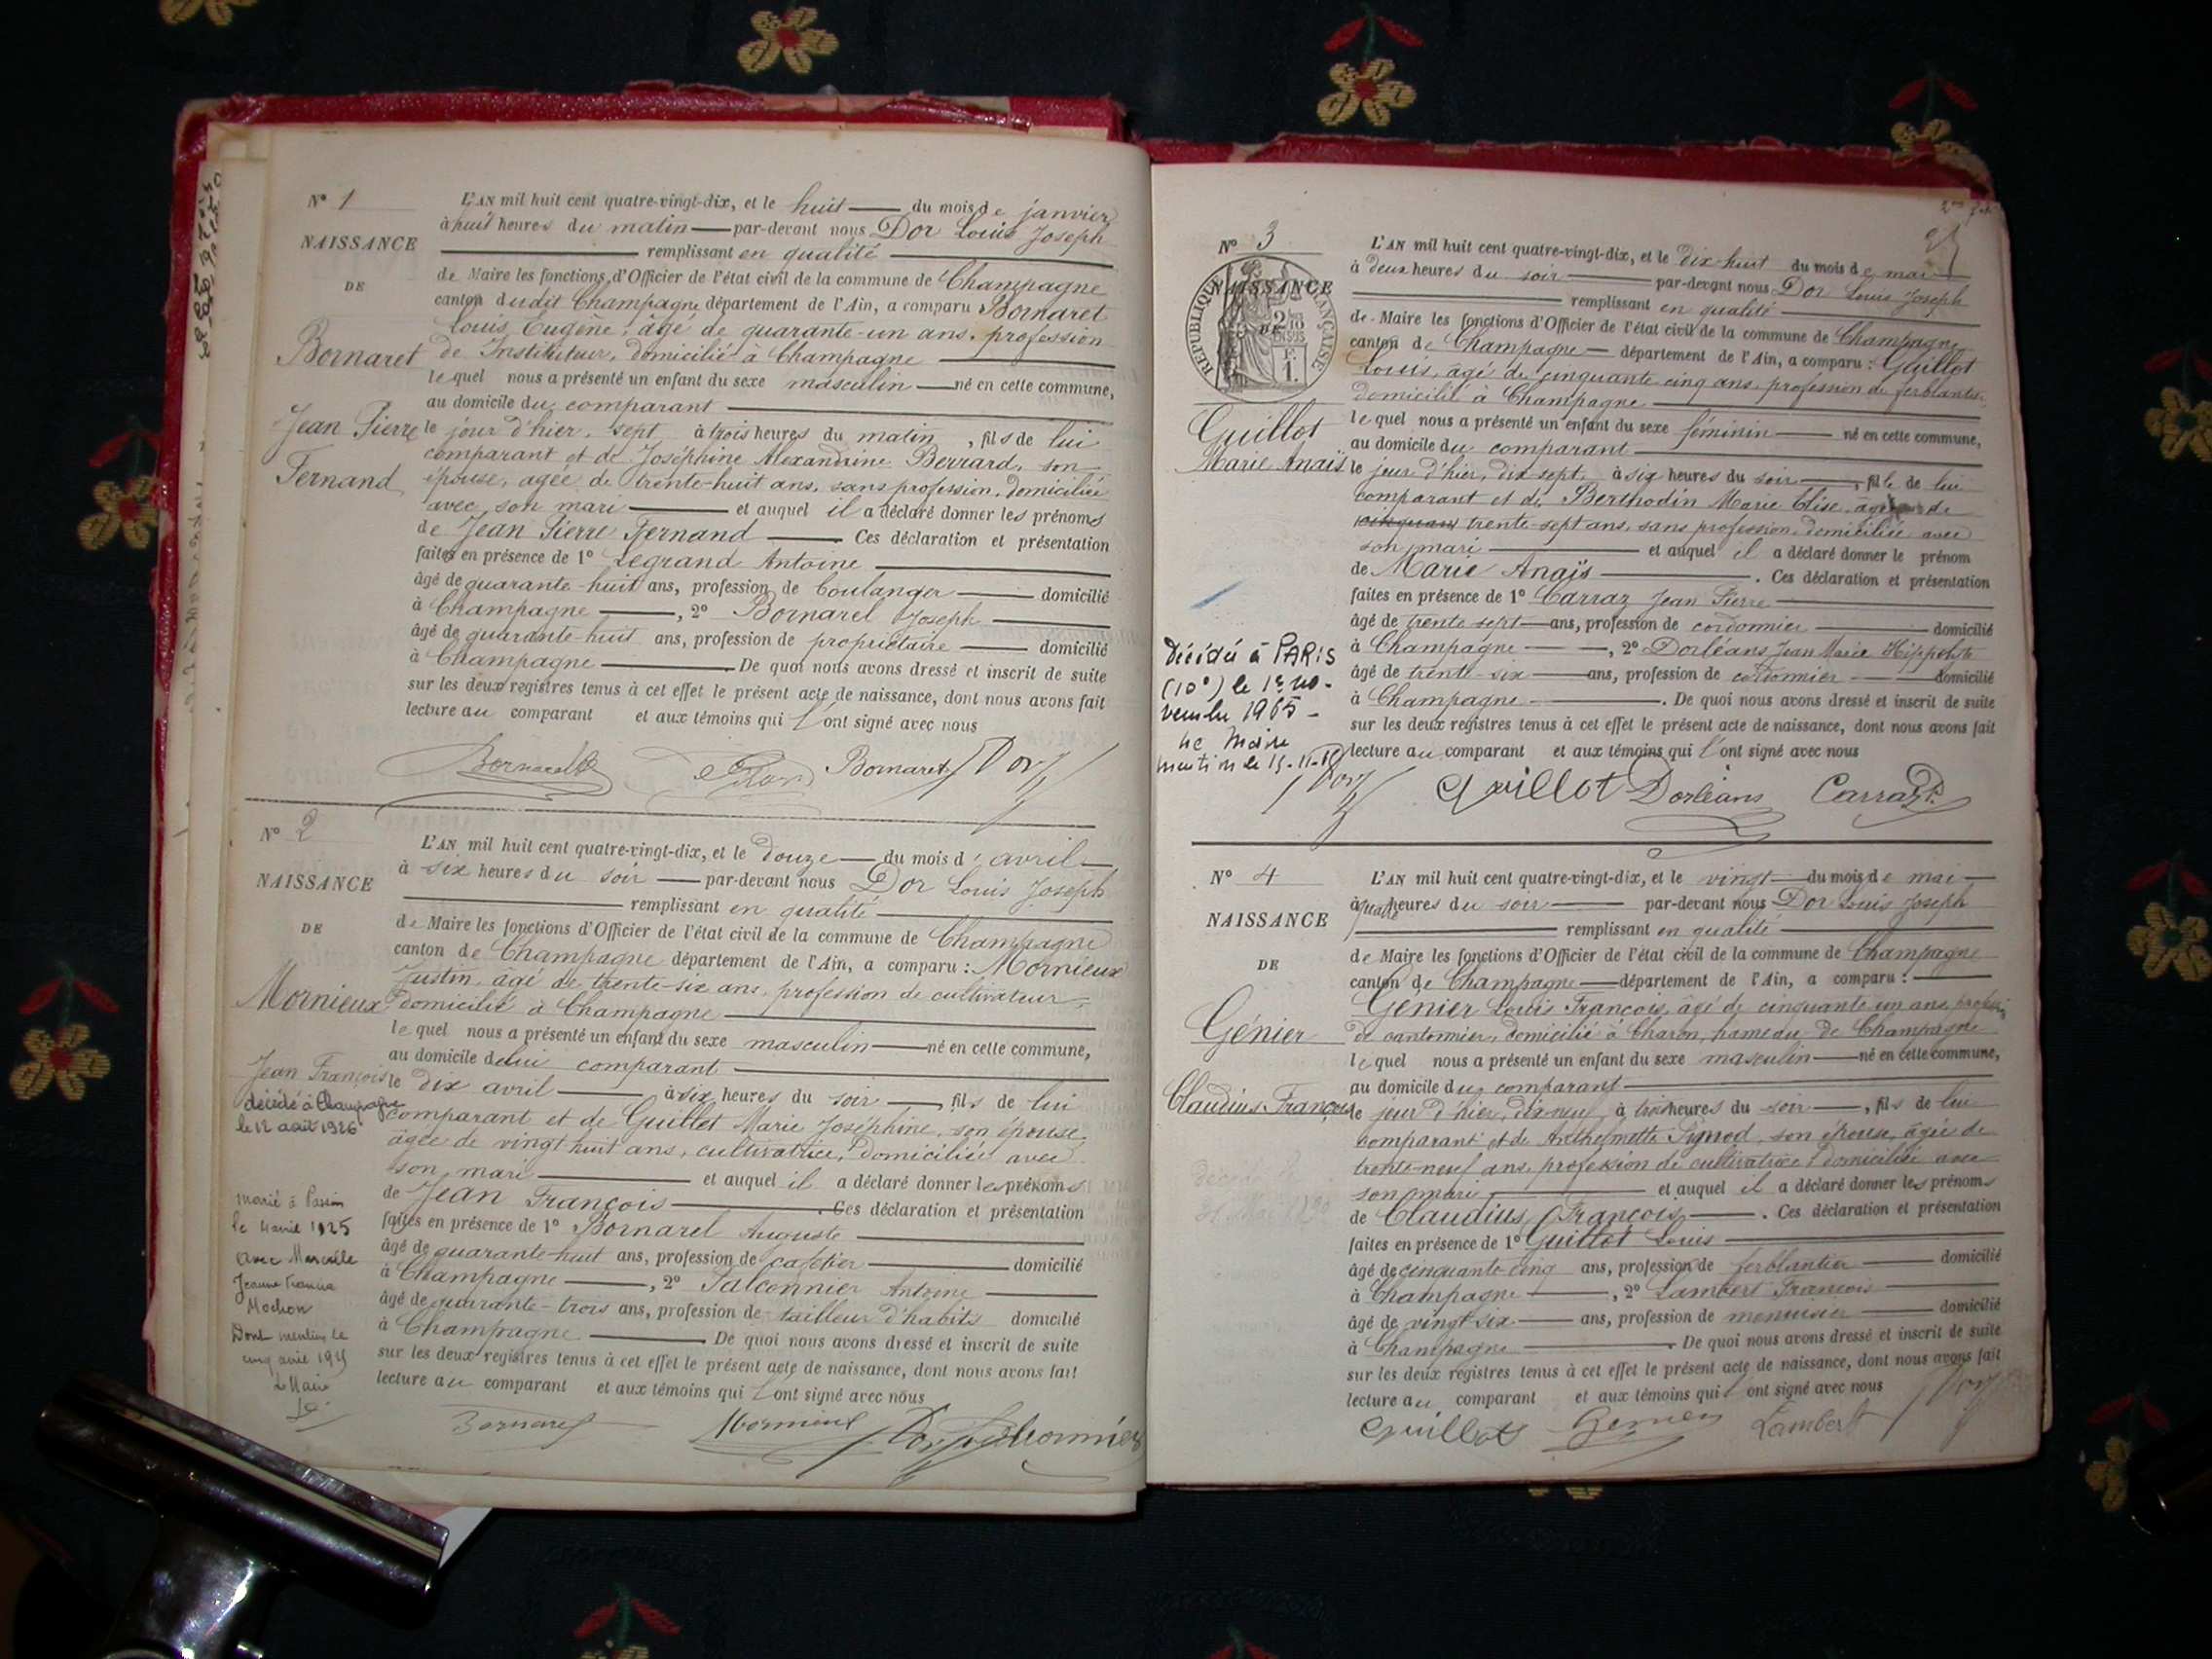 N° 1
NAISSANCE
DE
Bornaret
Jean Pierre
Fernand
L'AN mil huit cent quatre-vingt-dix, et le huit du mois de janvier
à huit heures du matin par-devant nous Dor Louis Joseph
remplissant en qualité
de Maire les fonctions d'Officier de l'état civil de la commune de Champagne
canton dudit Champagne département de l'Ain, a comparu Bornaret
Louis Eugène, âgé de quarante-un ans, profession
de Instituteur, domicilié à Champagne
lequel nous a présenté un enfant du sexe masculin né en cette commune,
au domicile du comparant
le jour d'hier, sept à trois heures du matin, fils de lui
comparant et de Joséphine Alexandrine Berrard, son
épouse, agée de trente-huit ans, sans profession, domiciliée
avec son mari et auquel il a déclaré donner les prénoms
de Jean Pierre Fernand Ces déclaration et présentation
faites en présence de 1° Legrand Antoine
âgé de quarante-huit ans, profession de boulanger domicilié
à Champagne, 2° Bornarel Joseph
âgé de quarante-huit ans, profession de propriétaire domicilié
à Champagne. De quoi nous avons dressé et inscrit de suite
sur les deux registres tenus à cet effet le présent acte de naissance, dont nous avons fait
lecture au comparant et aux témoins qui l'ont signé avec nous
Bornaret Dor
N° 2
NAISSANCE
DE
Mornieux
Jean François
décédé à Champagne
le 12 août 1926
marié à Passin
le 4 avril 1925
avec Marcelle
Jeanne Francia
Mochon
Dont mention le
cinq avril 1925
Le Maire
L'AN mil huit cent quatre-vingt-dix, et le douze du mois d'avril
à six heures du soir par-devant nous Dor Louis Joseph
remplissant en qualité
de Maire les fonctions d'Officier de l'état civil de la commune de Champagne
canton de Champagne département de l'Ain, a comparu : Mornieux
Justin, âgé de trente-six ans, profession de cultivateur
domicilié à Champagne
lequel nous a présenté un enfant du sexe masculin né en cette commune,
au domicile de lui comparant
le dix avril à six heures du soir, fils de lui
comparant et de Guillet Marie Joséphine, son épouse,
âgée de vingt huit ans, cultivatrice, domiciliée avec
son mari et auquel il a déclaré donner les prénoms
de Jean François. Ces déclaration et présentation
faites en présence de 1° Bornarel Auguste
âgé de quarante-huit ans, profession de cafetier domicilié
à Champagne, 2° Falconnier Antoine
âgé de quarante-trois ans, profession de tailleur d'habits domicilié
à Champagne. De quoi nous avons dressé et inscrit de suite
sur les deux registres tenus à cet effet le présent acte de naissance, dont nous avons fait
lecture au comparant et aux témoins qui l'ont signé avec nous
Bornarel Mornieux Dor Falconnier
N° 3
NAISSANCE
DE
RÉPUBLIQUE FRANÇAISE
Guillot
Marie Anaïs
Décédée à PARIS
(10e) le 1er no-
vembre 1965 -
Le Maire
mention le 15-11-65
L'AN mil huit cent quatre-vingt-dix, et le dix-huit du mois de mai
à deux heures du soir par-devant nous Dor Louis Joseph
remplissant en qualité
de Maire les fonctions d'Officier de l'état civil de la commune de Champagne
canton de Champagne département de l'Ain, a comparu : Guillot
Louis, âgé de cinquante cinq ans, profession de ferblantier
domicilié à Champagne
lequel nous a présenté un enfant du sexe féminin né en cette commune,
au domicile du comparant
le jour d'hier, dix sept, à six heures du soir, fille de lui
comparant et de Berthodin Marie Elise, âgée de
trente-sept ans, sans profession, domiciliée avec
son mari et auquel il a déclaré donner le prénom
de Marie Anaïs. Ces déclaration et présentation
faites en présence de 1° Carraz Jean Pierre
âgé de trente sept ans, profession de cordonnier domicilié
à Champagne, 2° Dorléans Jean Marie Hippolyte
âgé de trente-six ans, profession de cordonnier domicilié
à Champagne. De quoi nous avons dressé et inscrit de suite
sur les deux registres tenus à cet effet le présent acte de naissance, dont nous avons fait
lecture au comparant et aux témoins qui l'ont signé avec nous
Dor Guillot Dorléans Carraz
N° 4
NAISSANCE
DE
Génier
Claudius François
L'AN mil huit cent quatre-vingt-dix, et le vingt du mois de mai
à quatre heures du soir par-devant nous Dor Louis Joseph
remplissant en qualité
de Maire les fonctions d'Officier de l'état civil de la commune de Champagne
canton de Champagne département de l'Ain, a comparu :
Génier Louis François, âgé de cinquante un ans, profession
de cantonnier, domicilié à Charon, hameau de Champagne
lequel nous a présenté un enfant du sexe masculin né en cette commune,
au domicile du comparant
le jour d'hier, dix neuf, à trois heures du soir, fils de lui
comparant et de Anthelmette Pignod, son épouse, âgée de
trente-neuf ans, profession de cultivatrice, domiciliée avec
son mari et auquel il a déclaré donner les prénoms
de Claudius François. Ces déclaration et présentation
faites en présence de 1° Guillot Louis
âgé de cinquante cinq ans, profession de ferblantier domicilié
à Champagne, 2° Lambert François
âgé de vingt-six ans, profession de menuisier domicilié
à Champagne. De quoi nous avons dressé et inscrit de suite
sur les deux registres tenus à cet effet le présent acte de naissance, dont nous avons fait
lecture au comparant et aux témoins qui l'ont signé avec nous
Dor
Guillot Lambert